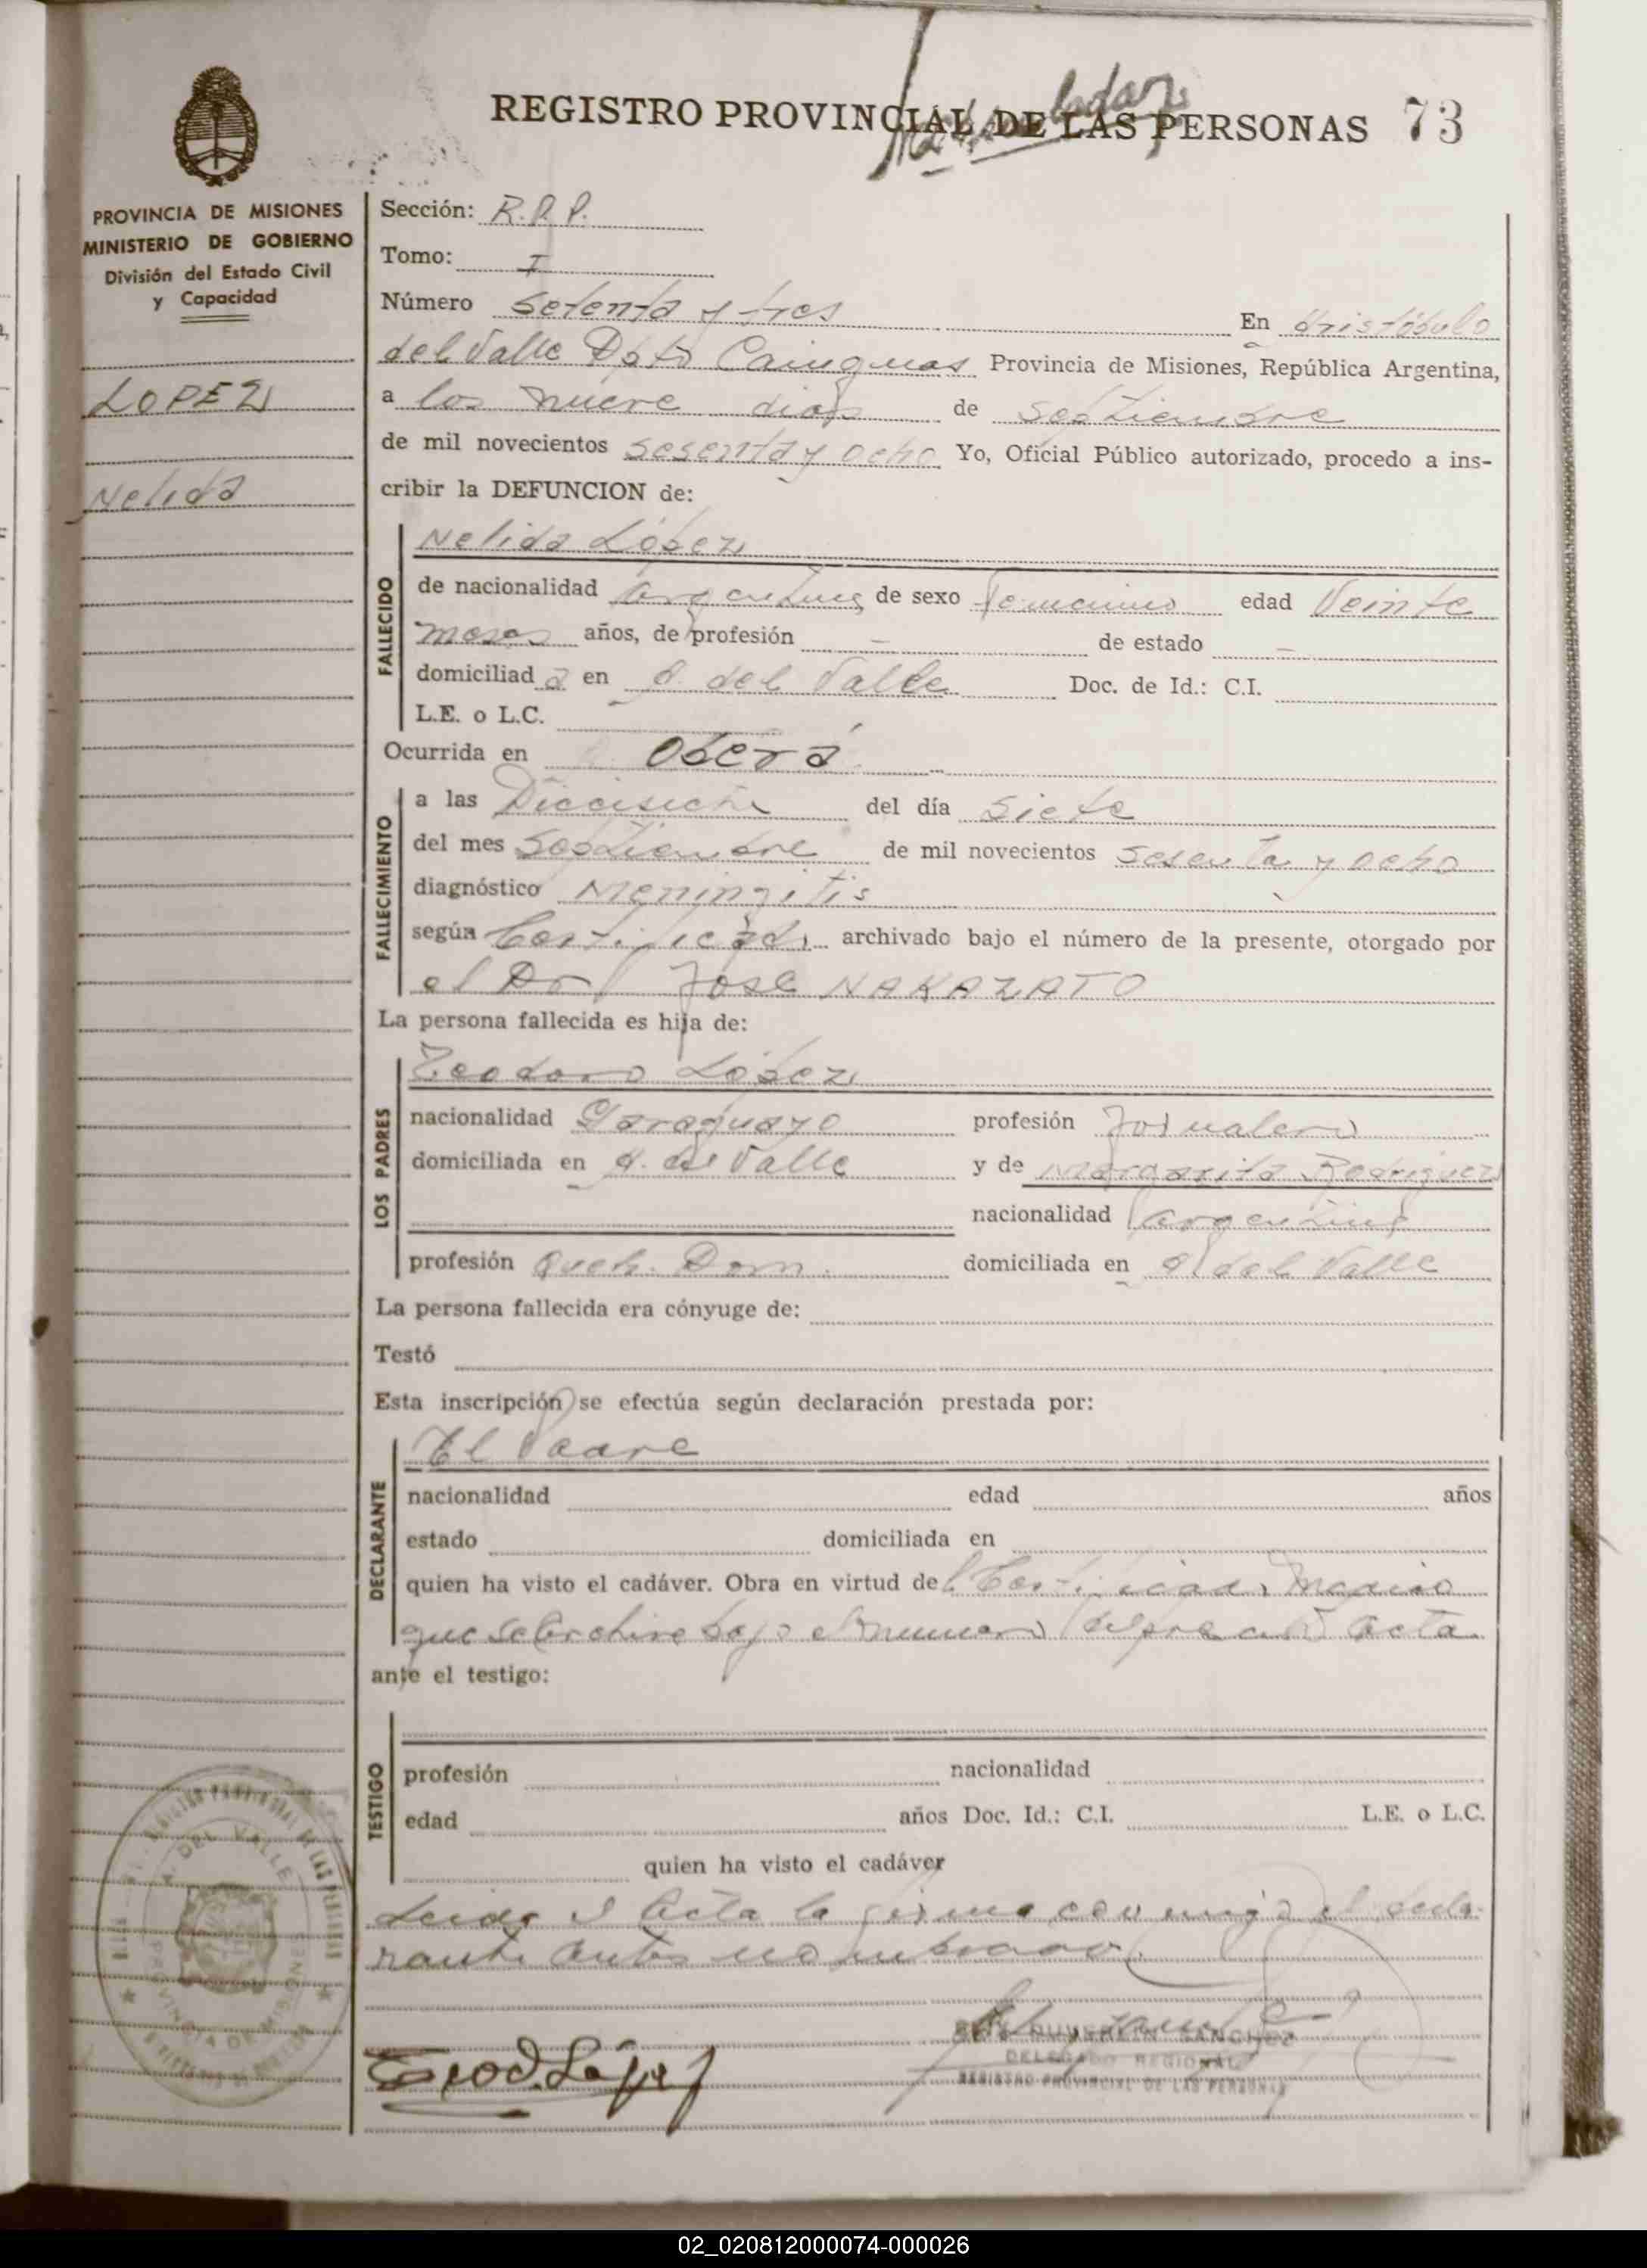 REGISTRO PROVINCIAL DE LAS PERSONAS 73
PROVINCIA DE MISIONES
MINISTERIO DE GOBIERNO
División del Estado Civil
y Capacidad
LOPEZ
Nelida
Sección: R.P.P.
Tomo: I
Número Setenta y tres En Aristóbulo
del Valle Dpto Cainguas Provincia de Misiones, República Argentina,
a los nueve dias de Septiembre
de mil novecientos sesenta y ocho Yo, Oficial Público autorizado, procedo a ins-
cribir la DEFUNCION de:
FALLECIDO
Nelida López
de nacionalidad Argentina de sexo femenino edad Veinte
meses años, de profesión — de estado —
domiciliad a en A. del Valle Doc. de Id.: C.I.
L.E. o L.C.
Ocurrida en Oberá
FALLECIMIENTO
a las Diecisiete del día siete
del mes Septiembre de mil novecientos sesenta y ocho
diagnóstico Meningitis
según Certificado archivado bajo el número de la presente, otorgado por
el Dr José NAKAZATO
La persona fallecida es hija de:
LOS PADRES
Teodoro López
nacionalidad Paraguayo profesión Jornalero
domiciliada en A. del Valle y de Margarita Rodriguez
nacionalidad argentina
profesión Queh. Dom. domiciliada en A. del Valle
La persona fallecida era cónyuge de:
Testó
Esta inscripción se efectúa según declaración prestada por:
DECLARANTE
El Padre
nacionalidad edad años
estado domiciliada en
quien ha visto el cadáver. Obra en virtud del Certificado Medico
que se archive bajo el numero del presente acta
ante el testigo:
TESTIGO
profesión nacionalidad
edad años Doc. Id.: C.I. L.E. o L.C.
quien ha visto el cadáver
Leida el Acta la firma conmigo el decla-
rante antes nombrado.
Teod. López
SANCHEZ
DELEGADO REGIONAL
REGISTRO PROVINCIAL DE LAS PERSONAS
A. DEL VALLE
PROVINCIA DE MISIONES
02_020812000074-000026